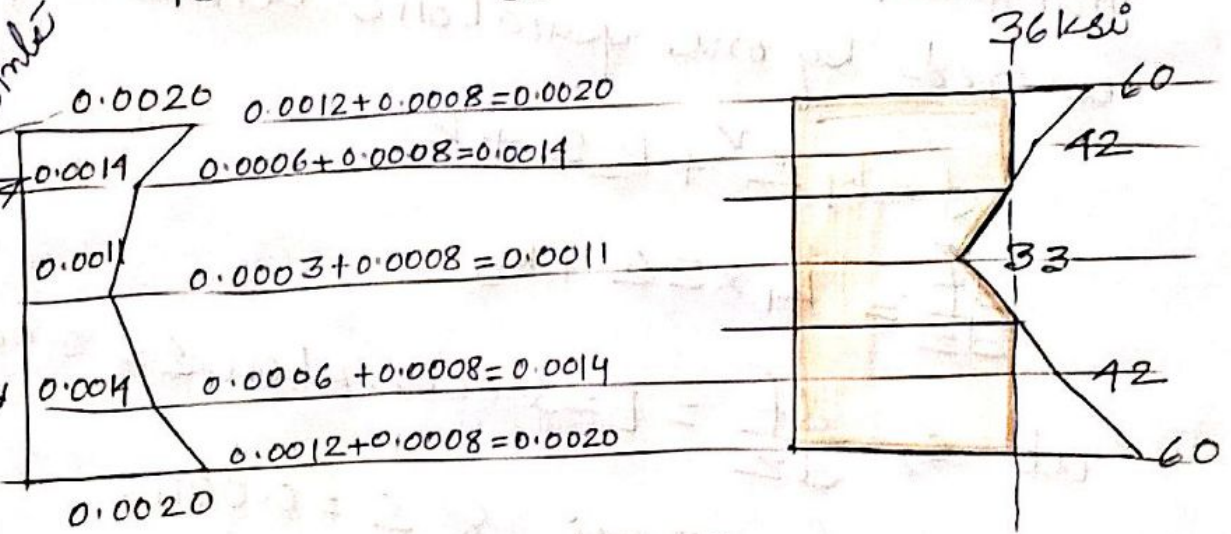 36 ksi
0.0020 0.0012+0.0008=0.0020 60
0.0014 0.0006+0.0008=0.0014 42
0.0011 0.0003+0.0008=0.0011 33
0.0014 0.0006+0.0008=0.0014 42
0.0012+0.0008=0.0020 60
0.0020